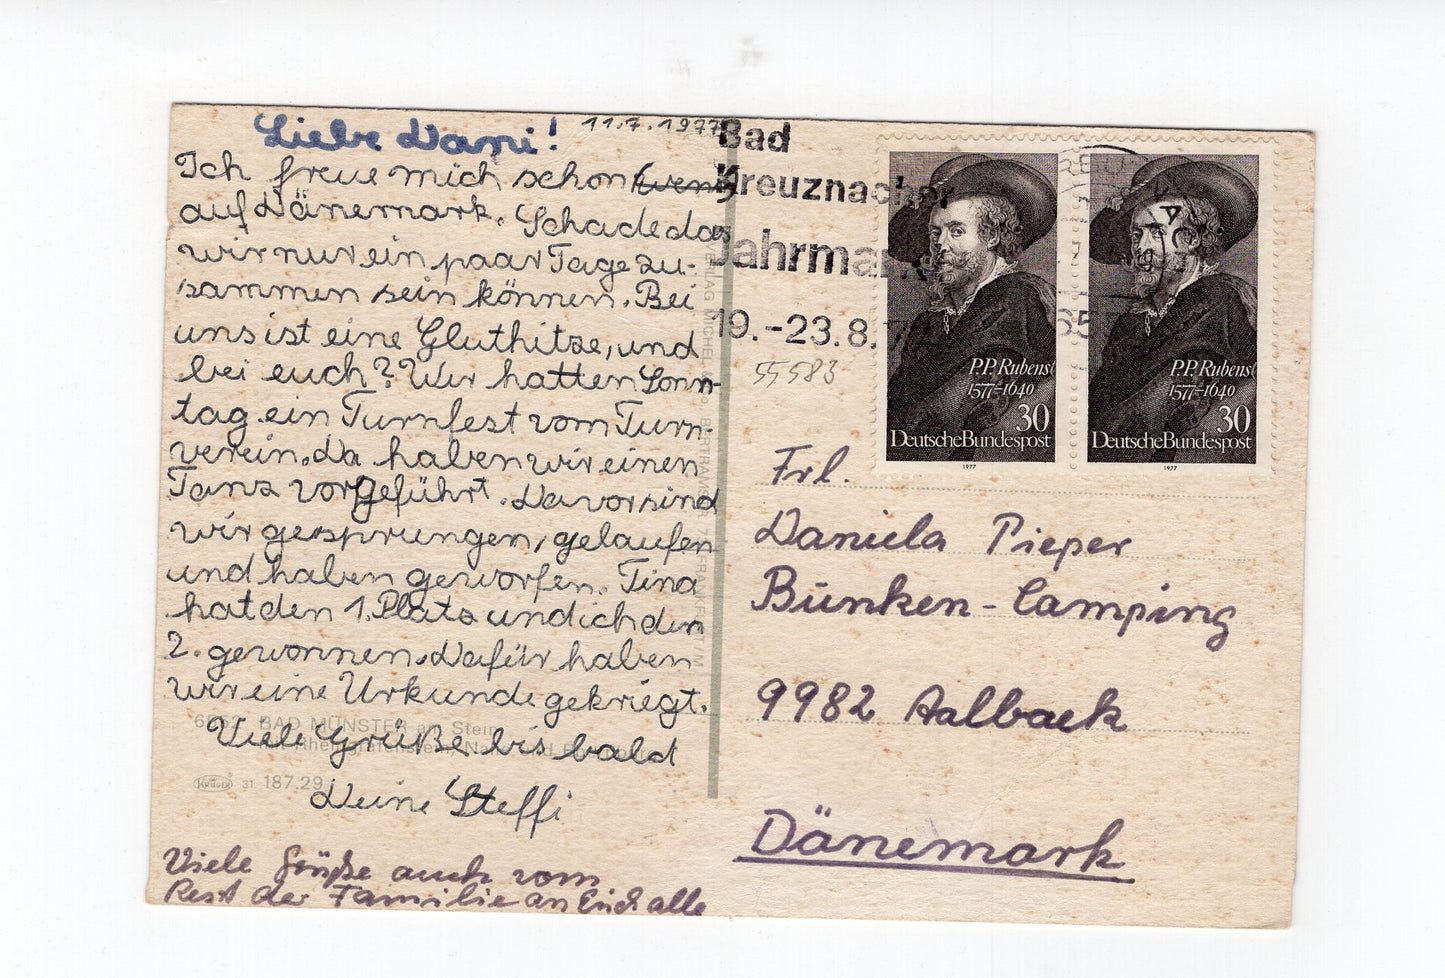 Liebe Dani! 11.7.1977
Ich freue mich schon
auf Dänemark. Schade das
wir nur ein paar Tage zu-
sammen sein können. Bei
uns ist eine Gluthitze, und
bei euch? Wir hatten Sonn-
tag ein Turnfest vom Turn-
verein. Da haben wir einen
Tanz vorgeführt. Davor sind
wir gesprungen, gelaufen
und haben geworfen. Tina
hat den 1. Platz und ich den
2. gewonnen. Dafür haben
wir eine Urkunde gekriegt.
Viele Grüße bis bald
Deine Steffi
Viele Grüße auch vom
Rest der Familie an Euch alle
BAD MÜNSTER am Stein
Krüger 31 187.29
Bad
Kreuznacher
Jahrmarkt
19.-23.8.
55583
P.P. Rubens
1577-1640
30
Deutsche Bundespost
1977
P.P. Rubens
1577-1640
30
Deutsche Bundespost
1977
Frl.
Daniela Pieper
Bunken-Camping
9982 Aalbaek
Dänemark